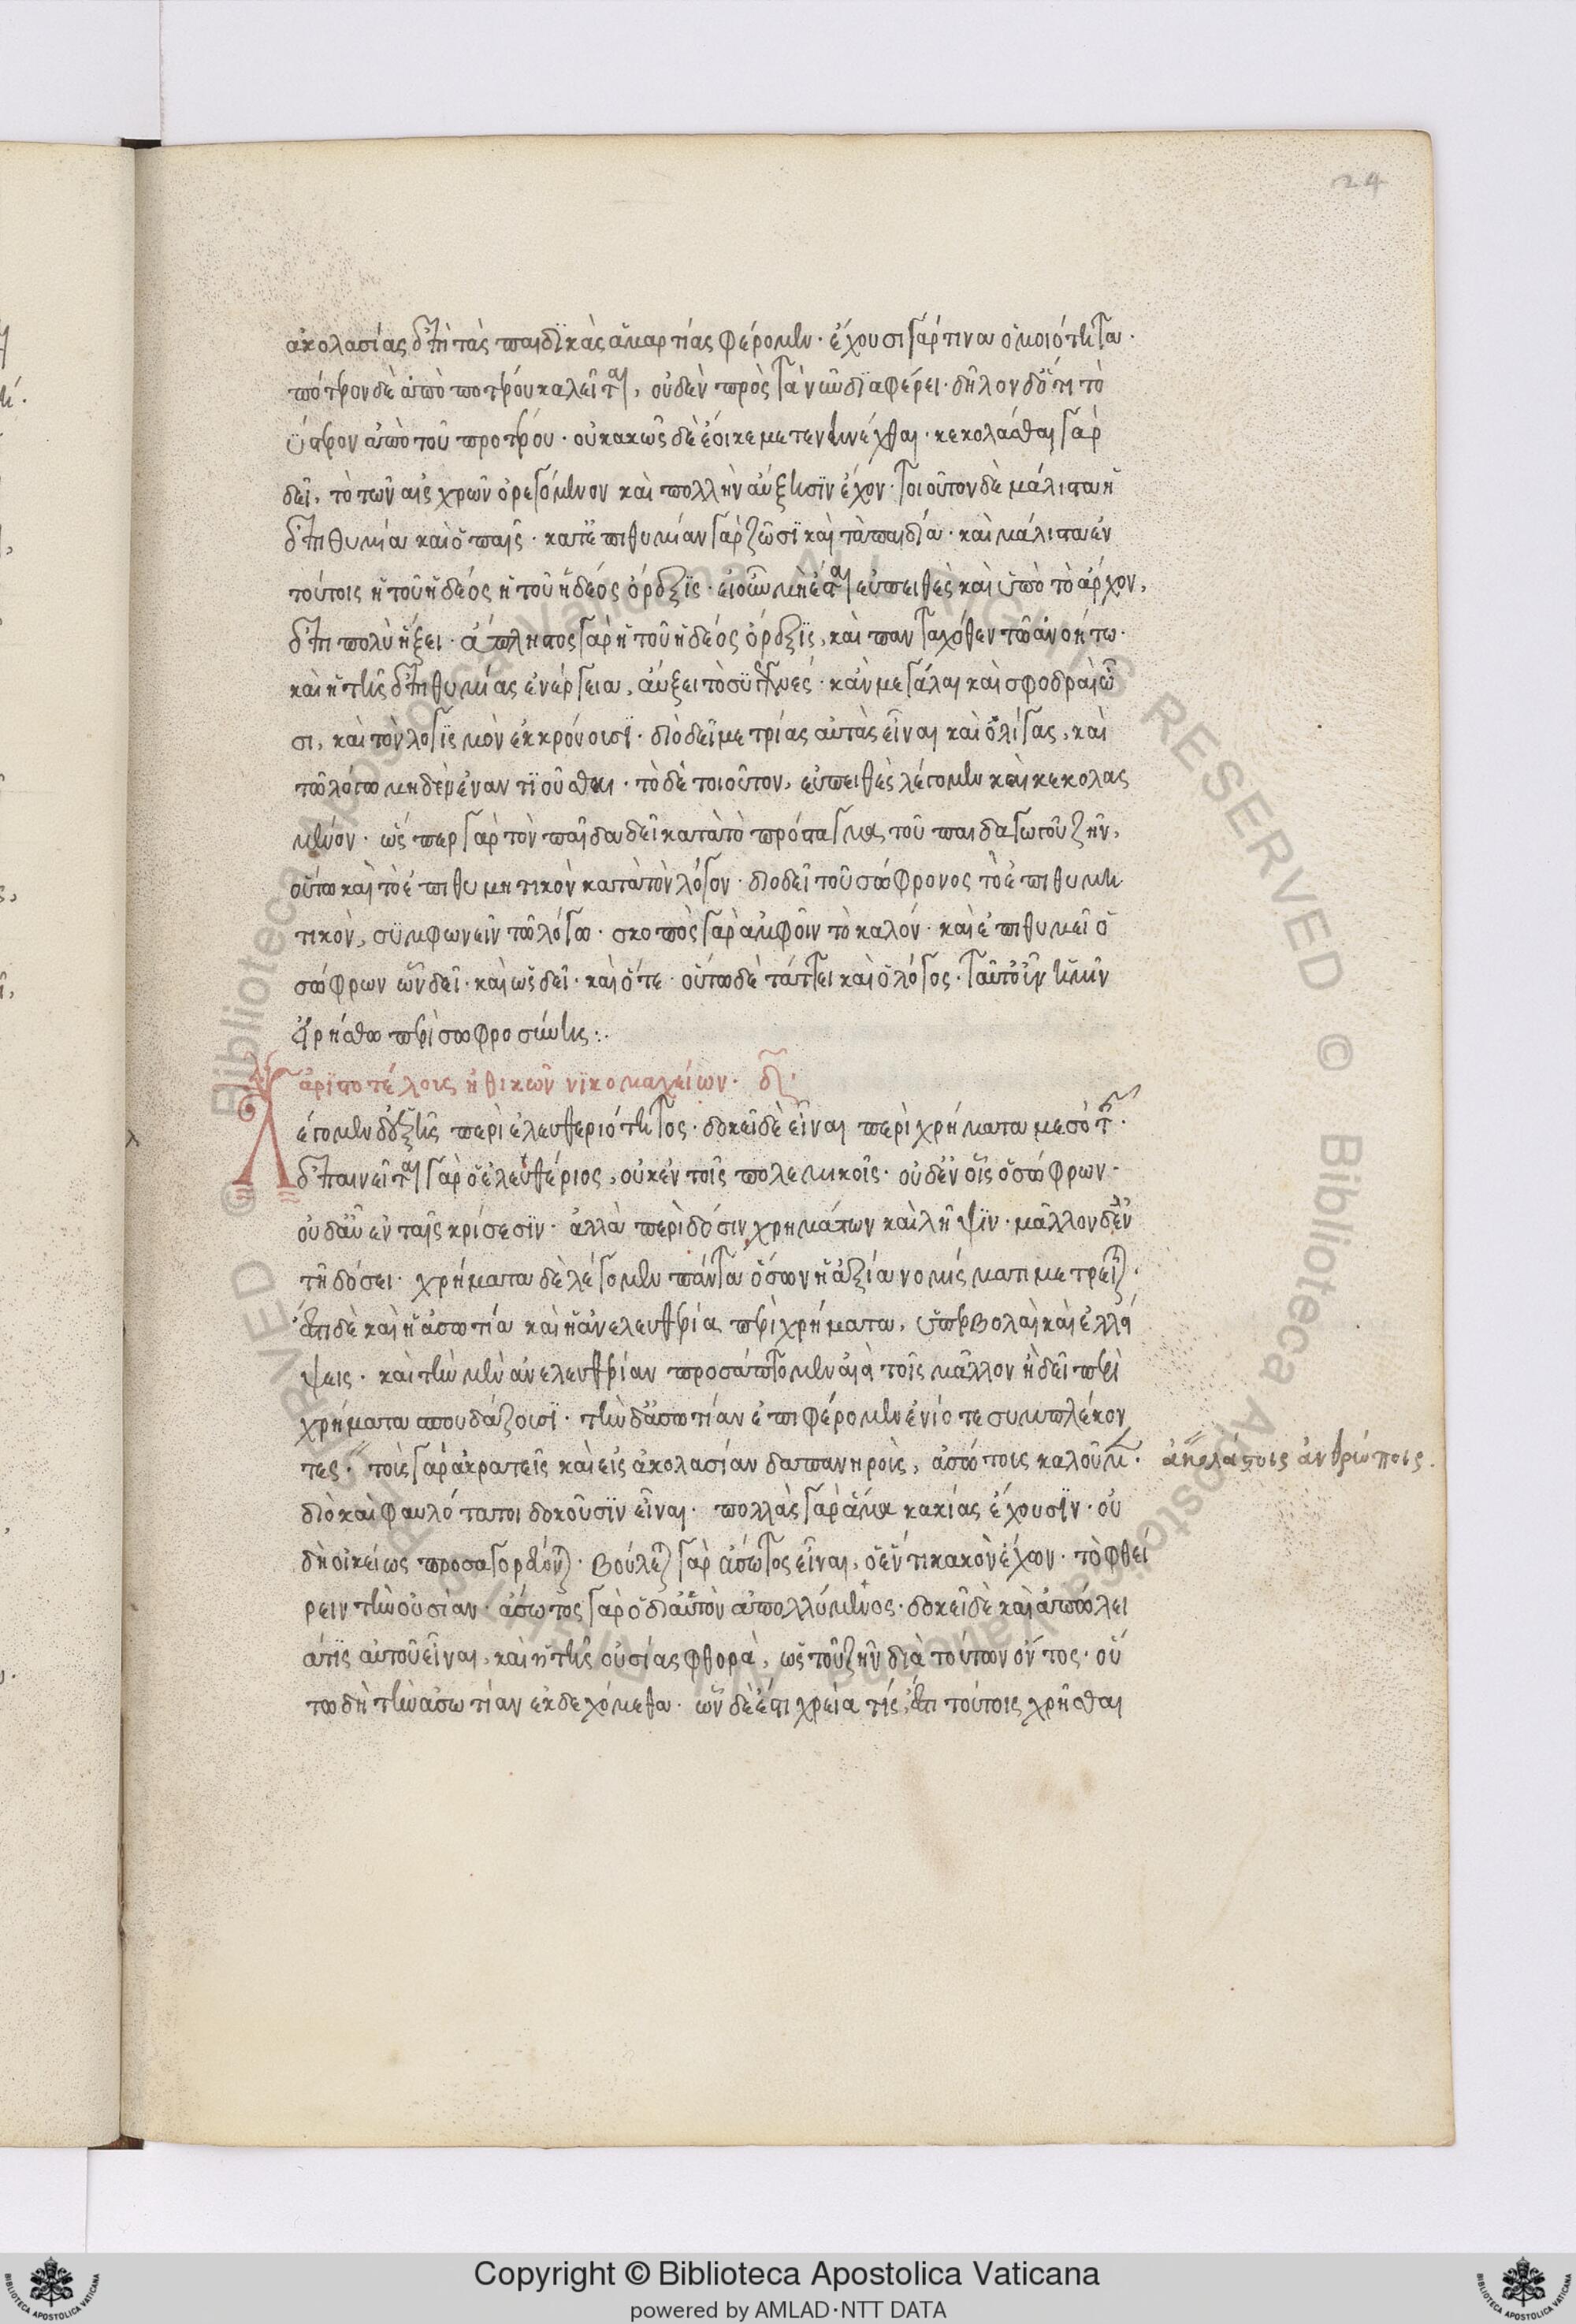 24
ἀκολασίας ἐπὶ τὰς παιδϊκὰς ἁμαρτίας φέρομεν· ἔχουσι γάρ τινα ὁμοιότητα·
πότερον δὲ ἀπὸ ποτέρου καλεῖται, οὐδὲν πρὸς τὰ νῦν διαφέρει· δῆλον δ' ὅτι τὸ
ὕστερον ἀπὸ τοῦ προτέρου· οὐ κακῶς δὲ ἔοικε μετενηνέχθαι· κεκολάσθαι γὰρ
δεῖ, τὸ τῶν αἰσχρῶν ὀρεγόμενον καὶ πολλὴν αὔξησϊν ἔχον· τοιοῦτον δὲ μάλιστα ἡ
ἐπιθυμία καὶ ὁ παῖς· κατ' ἐπιθυμίαν γὰρ ζῶσϊ καὶ τὰ παιδία· καὶ μάλιστα ἐν
τούτοις ἡ τοῦ ἡδέος ἡ τοῦ ἡδέος ὄρεξϊς· εἰ οὖν μὴ ἔσται εὐπειθὲς καὶ ὑπὸ τὸ ἄρχον,
ἐπὶ πολὺ ἥξει· ἄπληστος γὰρ ἡ τοῦ ἡδέος ὄρεξϊς, καὶ πανταχόθεν τῶ ἀνοήτω·
καὶ ἡ τῆς ἐπιθυμίας ἐνέργεια, αὔξει τὸ συγγενές· κἂν μεγάλαι καὶ σφοδραὶ ὦ
σι, καὶ τὸν λογϊσμὸν ἐκκρούουσϊ· διὸ δεῖ μετρίας αὐτὰς εἶναι καὶ ὀλίγας, καὶ
τῶ λόγω μηδὲν ἐναντϊοῦσθαι· τὸ δὲ τοιοῦτον, εὐπειθὲς λέγομεν καὶ κεκολασ
μένον· ὥσπερ γὰρ τὸν παῖδα δεῖ κατὰ τὸ πρόσταγμα τοῦ παιδαγωγοῦ ζῆν,
οὕτω καὶ τὸ ἐπιθυμητικὸν κατὰ τὸν λόγον· διὸ δεῖ τοῦ σώφρονος τὸ ἐπιθυμη
τικὸν, συμφωνεῖν τῶ λόγω· σκοπὸς γὰρ ἀμφοῖν τὸ καλόν· καὶ ἐπιθυμεῖ ὁ
σώφρων ὧν δεῖ· καὶ ὡς δεῖ· καὶ ὅτε· οὕτω δὲ τάττει καὶ ὁ λόγος· ταῦτ' οὖν ἡμῖν
εἰρήσθω περὶ σωφροσύνης:·
ἀριστοτέλους ἠθικῶν νϊκομαχείων· δ·
Λέγομεν δ' ἑξῆς περὶ ἐλευθεριότητος· δοκεῖ δὲ εἶναι περὶ χρήματα μεσότης·
ἐπαινεῖται γὰρ ὁ ἐλευθέριος, οὐκ ἐν τοῖς πολεμικοῖς· οὐδ' ἐν οἷς ὁ σώφρων·
οὐδ' αὖ ἐν ταῖς κρίσεσϊν· ἀλλὰ περὶ δόσιν χρημάτων καὶ λῆψϊν· μᾶλλον δ' ἐν
τῆ δόσει· χρήματα δὲ λέγομεν πάντα ὅσων ἡ ἀξία νομίσματι μετρεῖται·
ἔστι δὲ καὶ ἡ ἀσωτία καὶ ἡ ἀνελευθερία περὶ χρήματα, ὑπερβολαὶ καὶ ἐλλεί
ψεις· καὶ τὴν μὲν ἀνελευθερίαν προσάπτομεν ἀεὶ τοῖς μᾶλλον ἢ δεῖ περὶ
χρήματα σπουδάζουσϊ· τὴν δ' ἀσωτίαν ἐπιφέρομεν ἐνίοτε συμπλέκον
τες· τοὺς γὰρ ἀκρατεῖς καὶ εἰς ἀκολασίαν δαπανηροὺς, ἀσώτους καλοῦμεν· ἀκολάστους ἀνθρώπους.
διὸ καὶ φαυλότατοι δοκοῦσϊν εἶναι· πολλὰς γὰρ ἅμα κακίας ἔχουσϊν· οὐ
δὴ οἰκείως προσαγορεύονται· βούλεται γὰρ ἄσωτος εἶναι, ὁ ἕν τι κακὸν ἔχων· τὸ φθεί
ρειν τὴν οὐσίαν· ἄσωτος γὰρ ὁ δι' αὑτὸν ἀπολλύμενος· δοκεῖ δὲ καὶ ἀπώλει
ά τϊς αὐτοῦ εἶναι, καὶ ἡ τῆς οὐσίας φθορὰ, ὡς τοῦ ζῆν διὰ τούτων ὄντος· οὕ
τω δὴ τὴν ἀσωτίαν ἐκδεχόμεθα· ὧν δὲ ἐστι χρεία τίς, ἔστι τούτοις χρῆσθαι
Copyright © Biblioteca Apostolica Vaticana
powered by AMLAD·NTT DATA